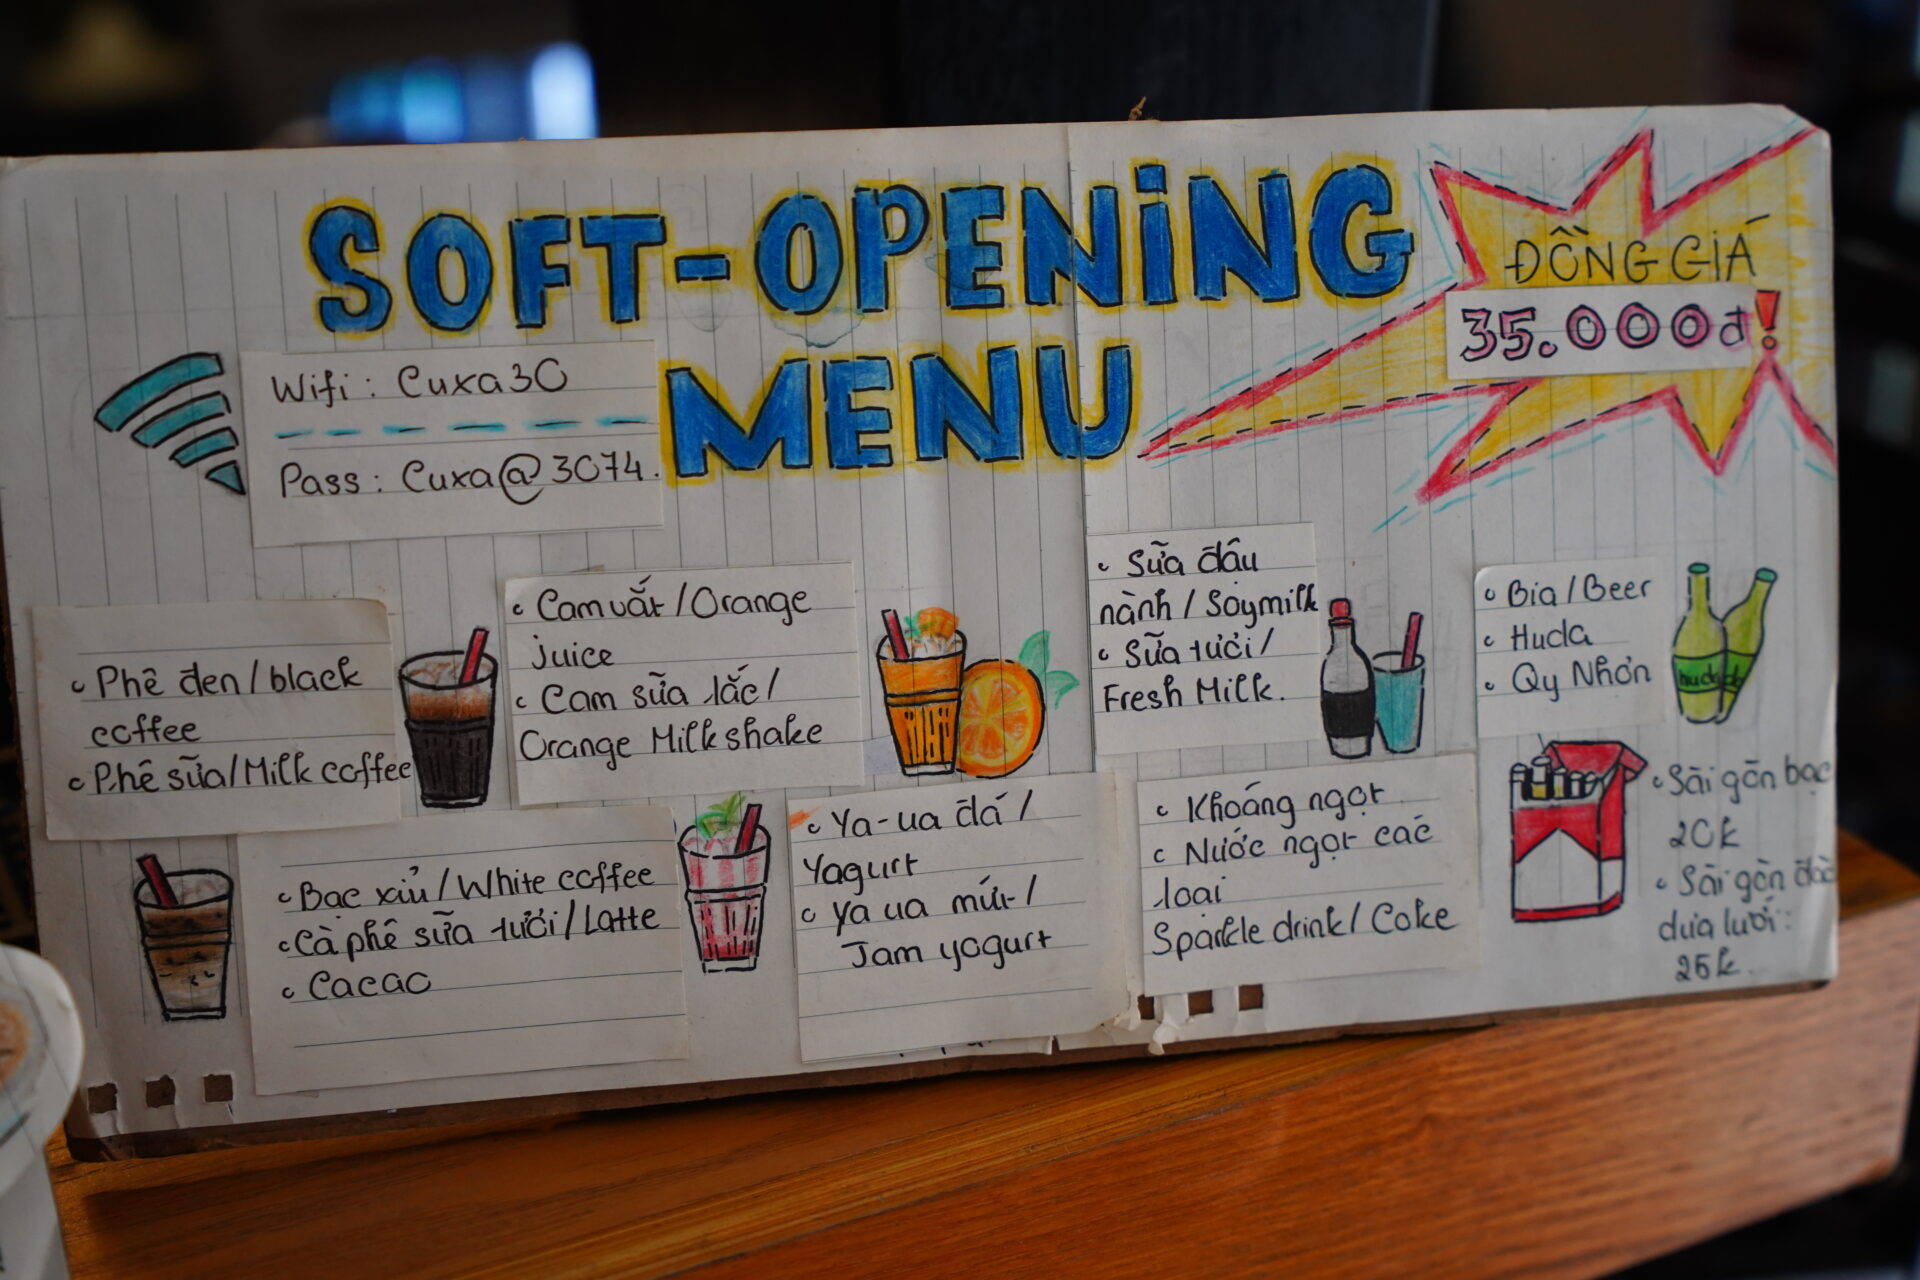 SOFT-OPENING
MENU
ĐỒNG GIÁ
35.000đ!
Wifi: Cuxa30
Pass: Cuxa@3074.
Phê đen/black
coffee
Phê sữa/Milk coffee
Cam vắt/Orange
juice
Cam sữa lắc/
Orange Milkshake
Sữa đậu
nành/Soymilk
Sữa tươi/
Fresh Milk.
Bia/Beer
Huda
Qy Nhơn
huda
Bạc xỉu/White coffee
Cà phê sữa tươi/Latte
Cacao
Ya-ua đá/
Yagurt
Ya ua mứt/
Jam yogurt
Khoáng ngọt
Nước ngọt các
loại
Sparkle drink/Coke
Sài gòn bạc
20k
Sài gòn
dưa lưới:
25k